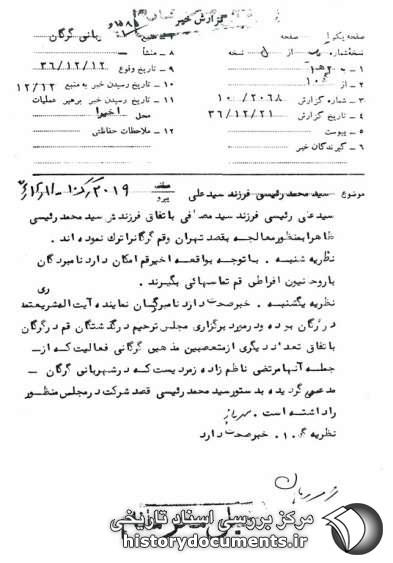 گزارش خبر
صفحه یکم از
۸ - منشأ
نسخه شماره از نسخه
۹ - تاریخ وقوع ۳۶/۱۲/۱۲
۱ - به
۱۰ - تاریخ رسیدن خبر به منبع ۱۲/۱۲
۲ - از
۱۱ - تاریخ رسیدن خبر برهبر عملیات
۳ - شماره گزارش
محل
۴ - تاریخ گزارش ۳۶/۱۲/۲۱
۱۲ - ملاحظات حفاظتی
۵ - پیوست
۶ - گیرندگان خبر
موضوع سید محمد رئیسی فرزند سید علی
سید علی رئیسی فرزند سید مصطفی باتفاق فرزندش سید محمد رئیسی
ظاهرا بمنظور معالجه بقصد تهران وقم گرگانرا ترك نموده اند .
نظریه شنبه . با توجه بواقعه اخیر قم امکان دارد نامبردگان
با روحانیون افراطی قم تماسهائی بگیرند .
نظریه یکشنبه . خبر صحت دارد نامبردگان نماینده آیت اله شریعتمداری
در گرگان بوده و در مورد برگزاری مجلس ترحیم درگذشتگان قم در گرگان
باتفاق تعداد دیگری از متعصبین مذهبی گرگانی فعالیت که از
جمله آنها مرتضی ناظم زاده زمردیست که در شهربانی گرگان
مدعی گردیده بدستور سید محمد رئیسی قصد شرکت در مجلس منظور
را داشته است .
نظریه خبر صحت دارد
مرکز بررسی اسناد تاریخی
historydocuments.ir